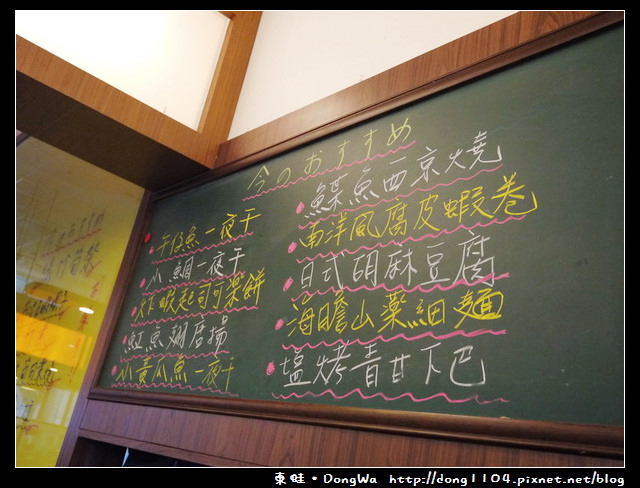 今のおすすめ
午仔魚一夜干
小鯛一夜干
炸蝦起司可樂餅
魟魚翅唐揚
小黃瓜魚一夜干
鰈魚西京燒
南洋風腐皮蝦卷
日式胡麻豆腐
海膽山藥細麵
塩烤青甘下巴
東哇·DongWa http://dong1104.pixnet.net/blog